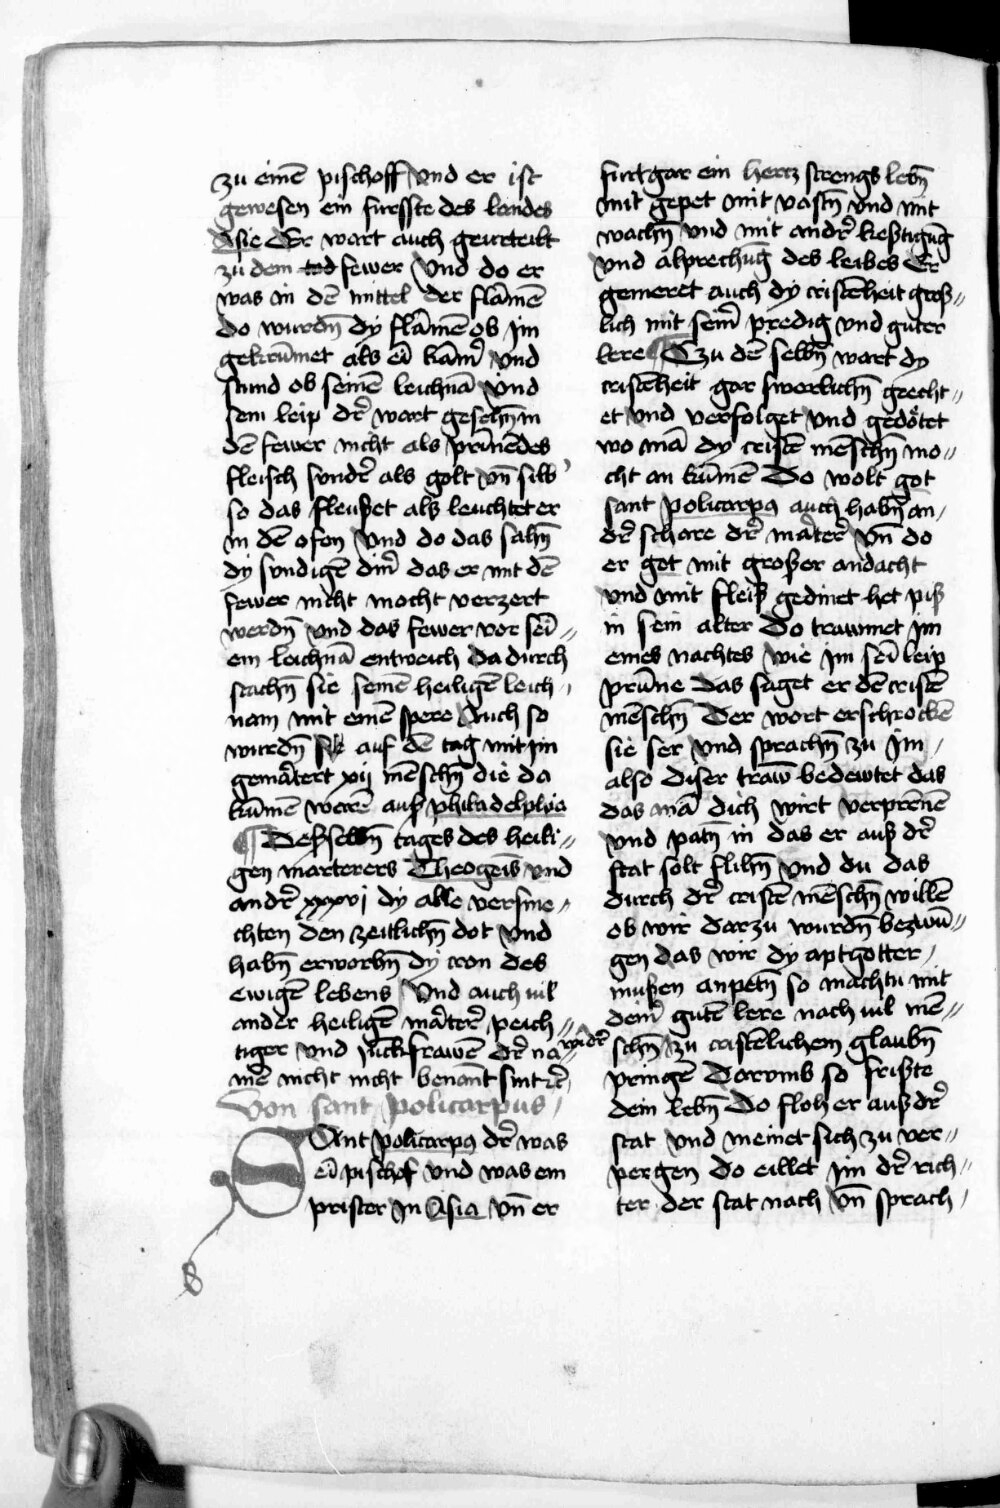 zu einē pischoff Vnd er ist
gewesen ein fursste des landes
Asie Er wart auch geurteilt
zu dem tod fewer Vnd do er
was in dē mittel der flāmē
do wurdn̄ dy flāmē ob im
gekrūmet als eī kām̄ Vnd
stund ob seinē leichnā Vnd
sein leip dr̄ wart gesehn̄ in
dē fewer nicht als prīnēdes
fleisch sundr̄ als golt vn̄ silb
so das fleuset als leuchtet er
in dē ofen Vnd do das sahn̄
dy sundigē dīn̄ das er mit dē
fewer nicht mocht verzert
werdn̄ vnd das fewer vor sei=
em leichnā entweich da durch
stachn̄ sie seinē heiligē leich
nam mit einē spere Auch so
wurdn̄ sie auf dē tag mit im
gemartert xij mēschn̄ die da
kūmē werē auß philadelphia
¶ Desselbn̄ tages des heili=
gen marterers Theogeīs vnd
andr̄ xxxvj dy alle versme=
chten den zeitlichn̄ dot Vnd
habn̄ erworbn̄ dy cron des
ewigē lebens Vnd auch uil
ander heiligē martrr̄ peich=
tiger vnd jūckfrawē dr̄ na=
mē nicht nicht benant sint rc̄
Von sant policarpus
SAnt policarpus dr̄ was
eī pischof vnd was ein
prister in Asia vn̄ er
furt gar ein hertz strengs lebn̄
mit gepet mit vastn̄ vnd mit
wachn̄ vnd mit andr̄ kestigūg
vnd abprechūg des leibes Er
gemeret auch dy cristēheit groß=
lich mit seim̄ predig vnd guter
lere ¶ Czu dē selbn̄ wart dy
cristēheit gar swerlichn̄ geecht=
et vnd verfolget vnd gedötet
wo mā dy cristē mēschn̄ mo=
cht an kūmē Do wolt got
sant policarpus auch habn̄ an
dr̄ schare dr̄ martrr̄ vn̄ do
er got mit großer andacht
vnd mit fleiß gedinet het piß
in sein alter Do trawmet im
eines nachtes wie im seī leip
prūne Das saget er dē cristē
mēschn̄ Der wort erschrockē
sie ser vnd sprachn̄ zu im
also Diser traw̄ bedewtet das
das mā dich wirt verprēnē
vnd patn̄ in das er auß dr̄
stat solt flihn̄ Vnd du das
durch dr̄ cristē mēschn̄ willē
ob wir darzu wurdn̄ bezwū=
gen das wir dy aptgotter
mußen anpetn̄ so machtu mit
deim̄ gutē lere nach uil mē=
widr̄ schn̄ zu cristēlichem glaubn̄
pringē Darvmb so friste
dein lebn̄ Do floh er auß dr̄
stat vnd meinet sich zu ver=
pergen Do eillet im dr̄ rich=
ter der stat nach vn̄ sprach